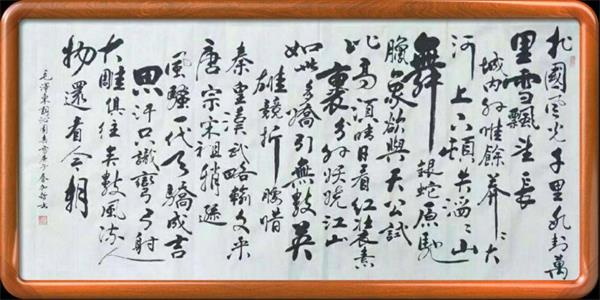 北國風光千里冰封萬
里雪飄望長
城内外惟餘莽〻大
河上下頓失滔〻山
舞銀蛇原馳
臘象欲與天公試
比高須晴日看紅裝素
裹分外妖嬈江山
如此多嬌引無數英
雄競折腰惜
秦皇漢武略輸文采
唐宗宋祖稍遜
風騷一代天驕成吉
思汗只識彎弓射
大雕俱往矣數風流人
物還看今朝
毛澤東詞沁園春雪